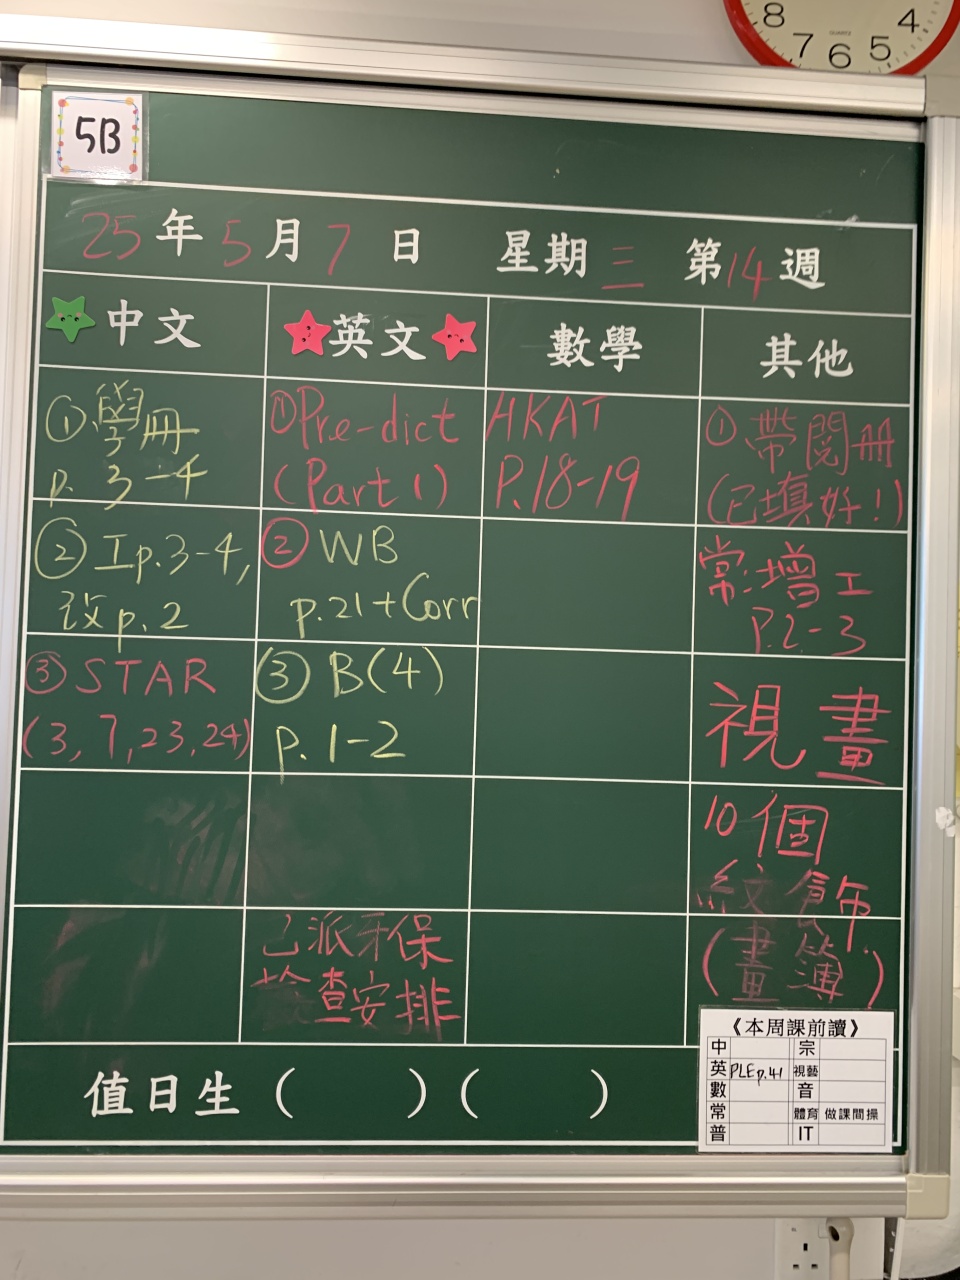 8 7 6 5 4
QUARTZ
5B
25年5月7日 星期三 第14週
中文
①學冊
p. 3-4
②工p.3-4,
改p.2
③STAR
(3, 7, 23, 24)
英文
①Pre-dict
(Part 1)
②WB
p.21+Corr
③B(4)
p. 1-2
已派牙保
檢查安排
數學
HKAT
P.18-19
其他
①帶閱冊
(已填好!)
常:增工
P.2-3
視畫
10個
紋飾
(畫簿)
值日生( )( )
《本周課前讀》
中 宗
英 PLE p.41 視藝
數 音
常 體育 做課間操
普 IT